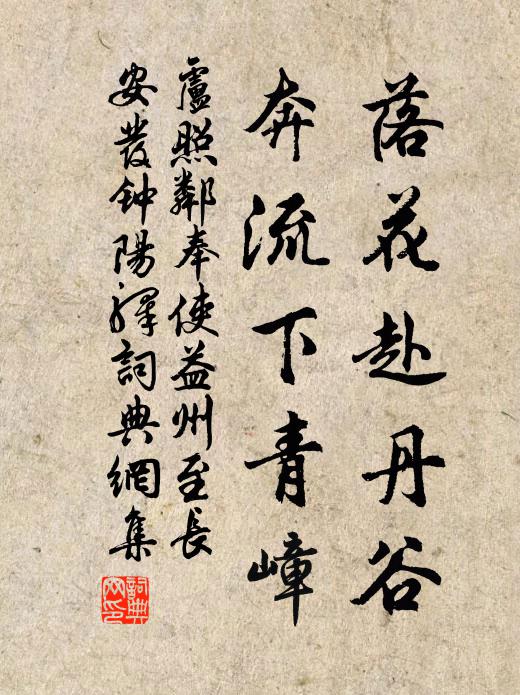 落花赴丹谷
奔流下青嶂
盧照鄰奉使益州至長
安發钟陽驛詞典網集
詞典網印